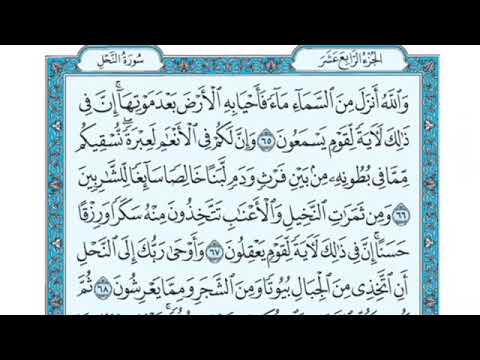 الجزء الرابع عشر
سورة النحل
وَٱللَّهُ أَنزَلَ مِنَ ٱلسَّمَآءِ مَآءً فَأَحْيَا بِهِ ٱلْأَرْضَ بَعْدَ مَوْتِهَآ ۚ إِنَّ فِى
ذَٰلِكَ لَـَٔايَةً لِّقَوْمٍ يَسْمَعُونَ ٦٥ وَإِنَّ لَكُمْ فِى ٱلْأَنْعَـٰمِ لَعِبْرَةً ۖ نُّسْقِيكُم
مِّمَّا فِى بُطُونِهِۦ مِنۢ بَيْنِ فَرْثٍ وَدَمٍ لَّبَنًا خَالِصًا سَآئِغًا لِّلشَّـٰرِبِينَ
٦٦ وَمِن ثَمَرَٰتِ ٱلنَّخِيلِ وَٱلْأَعْنَـٰبِ تَتَّخِذُونَ مِنْهُ سَكَرًا وَرِزْقًا
حَسَنًا ۗ إِنَّ فِى ذَٰلِكَ لَـَٔايَةً لِّقَوْمٍ يَعْقِلُونَ ٦٧ وَأَوْحَىٰ رَبُّكَ إِلَى ٱلنَّحْلِ
أَنِ ٱتَّخِذِى مِنَ ٱلْجِبَالِ بُيُوتًا وَمِنَ ٱلشَّجَرِ وَمِمَّا يَعْرِشُونَ ٦٨ ثُمَّ